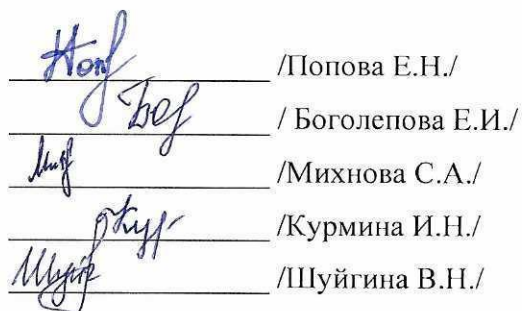 /Попова Е.Н./
/ Боголепова Е.И./
/Михнова С.А./
/Курмина И.Н./
/Шуйгина В.Н./